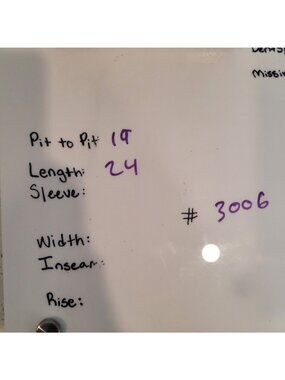 Missi
Pit to Pit 19
Length: 24
Sleeve:
# 3006
Width:
Insear:
Rise: